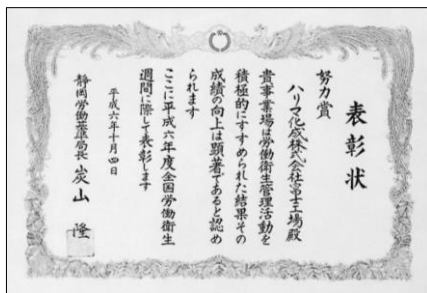 表彰状
努力賞
ハリマ化成株式会社富士工場殿
貴事業場は労働衛生管理活動を
積極的にすすめられた結果その
成績の向上は顕著であると認め
られます
ここに平成六年度全国労働衛生
週間に際して表彰します
平成六年十月四日
静岡労働基準局長
山 隆